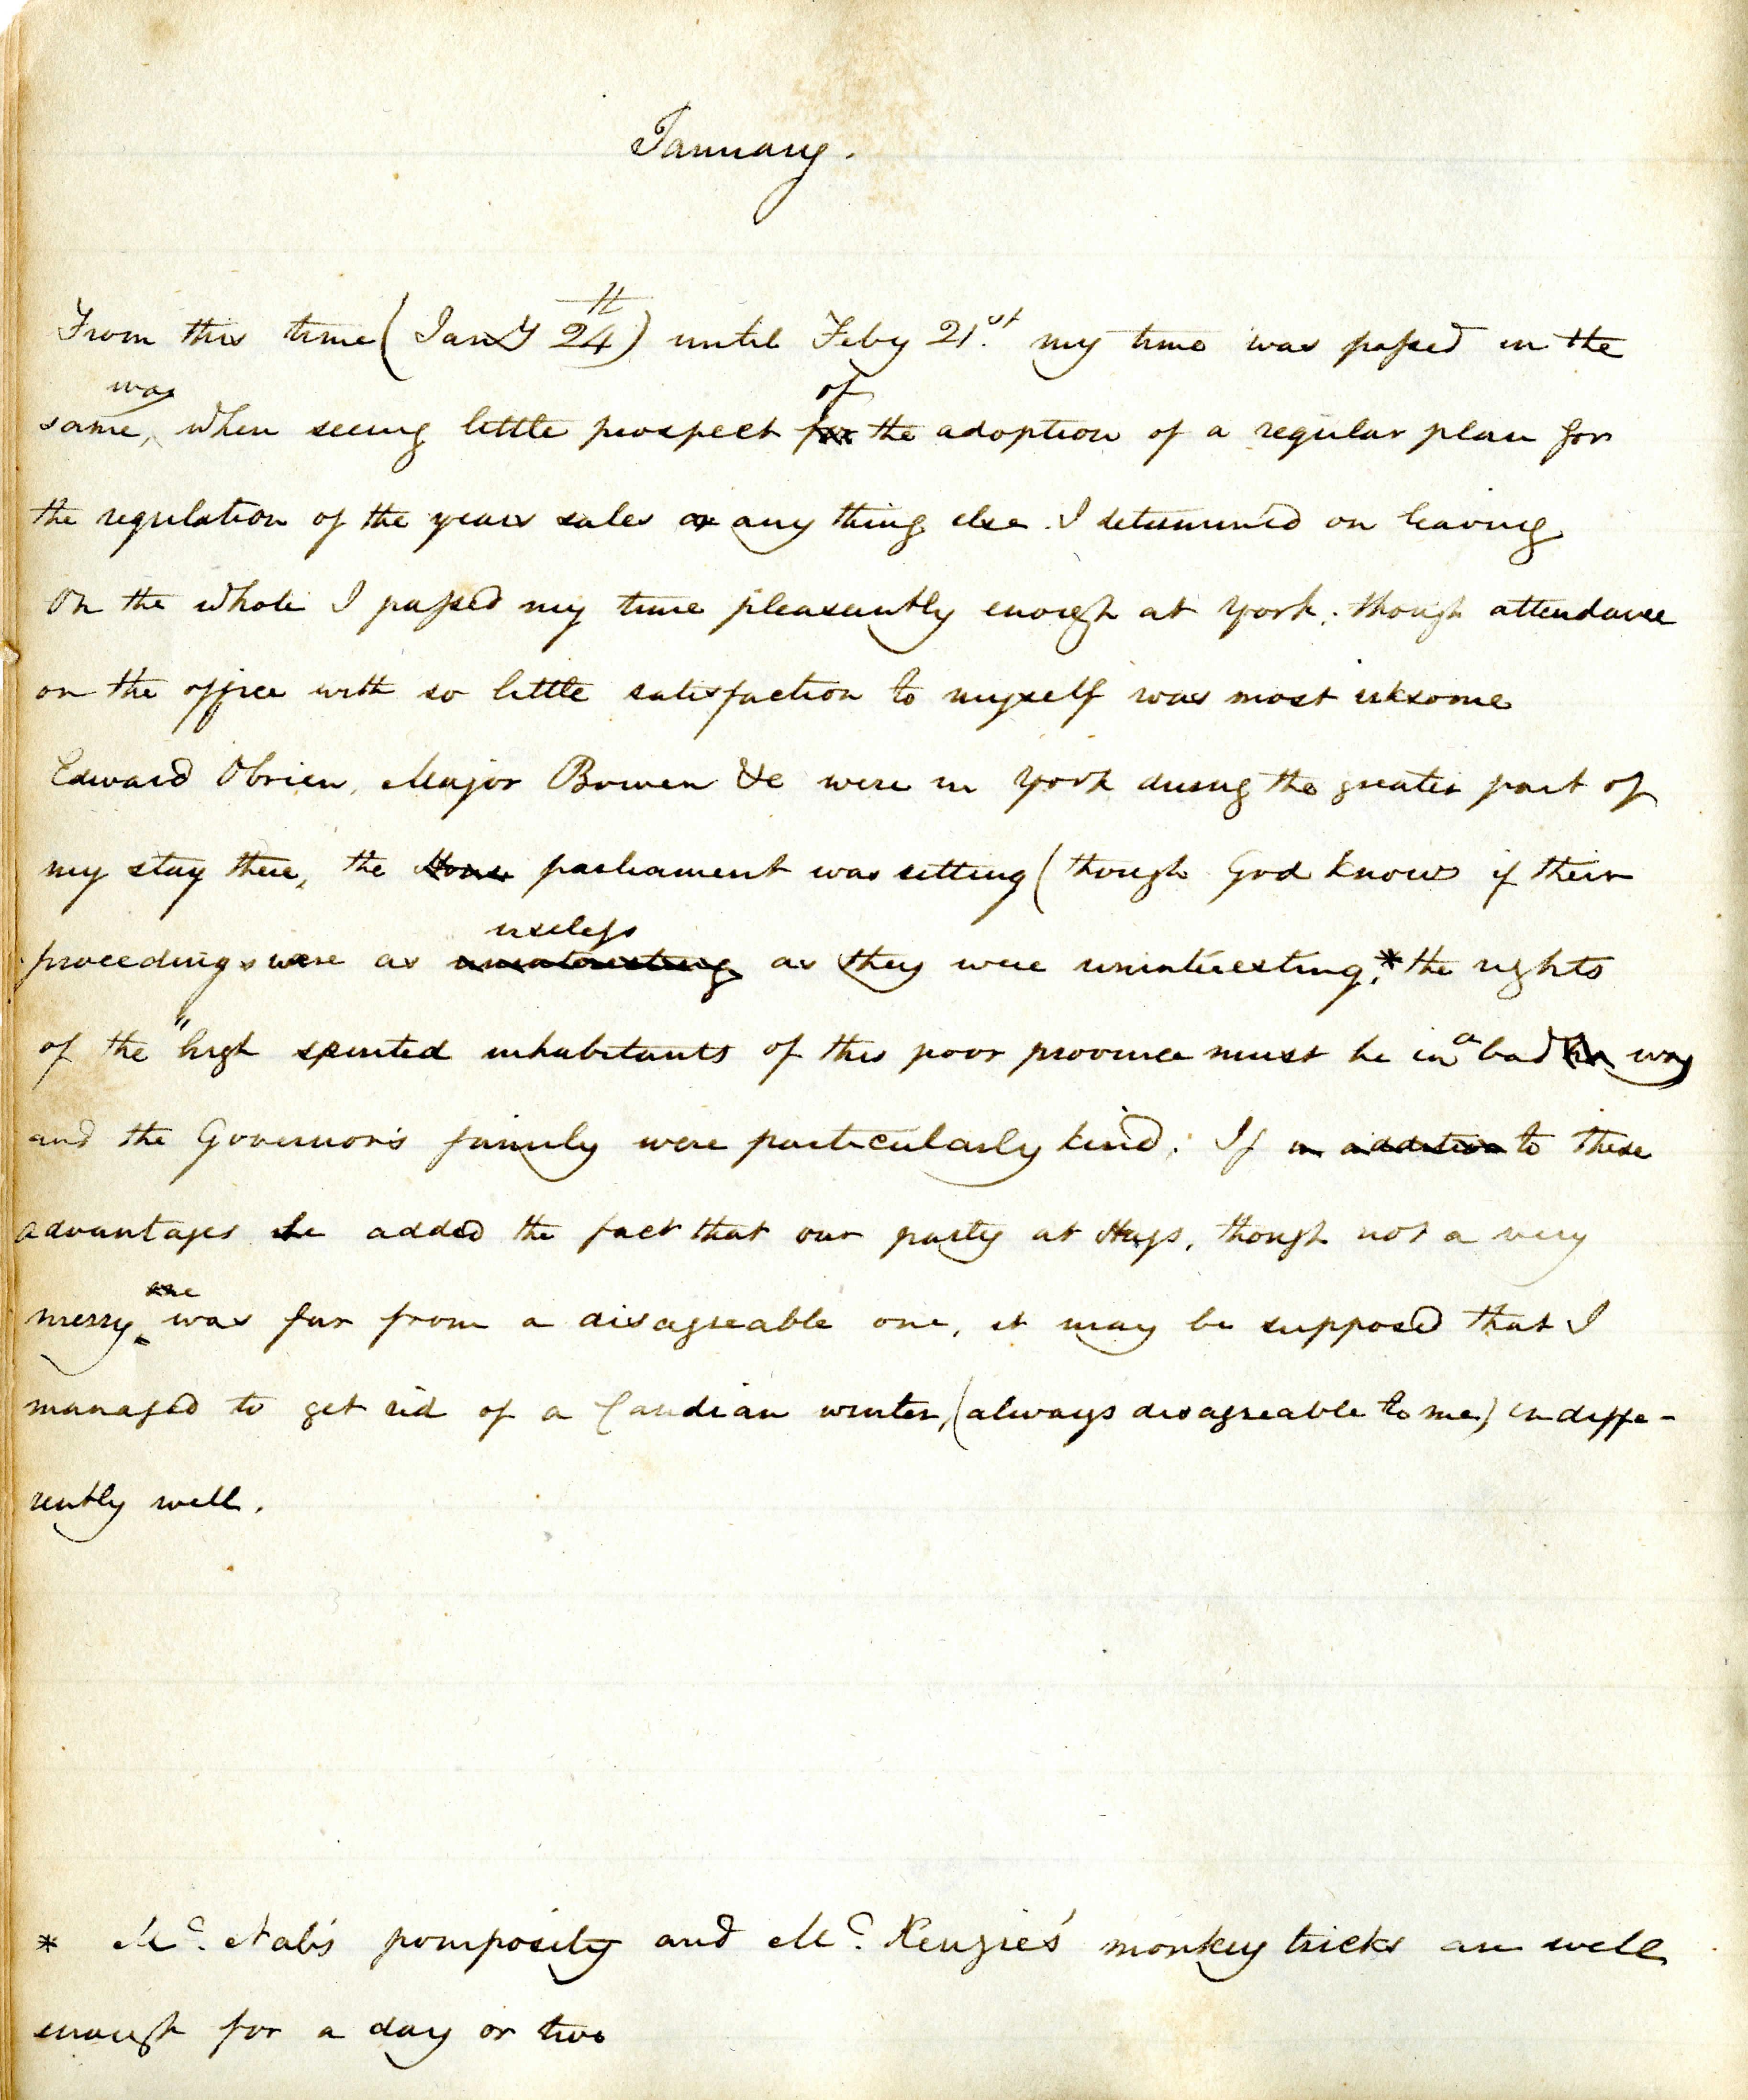 January.
From this time (Jany 24th) until Feby 21st. my time was passed in the
same way, when seeing little prospect of the adoption of a regular plan for
the regulation of the years sales or any thing else I determined on leaving
On the whole I passed my time pleasantly enough at York; though attendance
on the office with so little satisfaction to myself was most irksome
Edward Obrien, Major Bowen &c were in York during the greater part of
my stay there, the parliament was sitting (though God knows if their
proceedings were as uninteresting useless as they were uninteresting,* the rights
of the "high spirited inhabitants of this poor province must be in a bad way
and the Governor's family were particularly kind; If in addition to these
advantages be added the fact that our party at Hugs, though not a very
merry one was far from a disagreeable one, it may be supposed that I
managed to get rid of a Candian winter, (always disagreeable to me) indiffe-
rently well.
* Mc. Nab's pomposity and Mc. Kenzie's monkey tricks are well
enough for a day or two